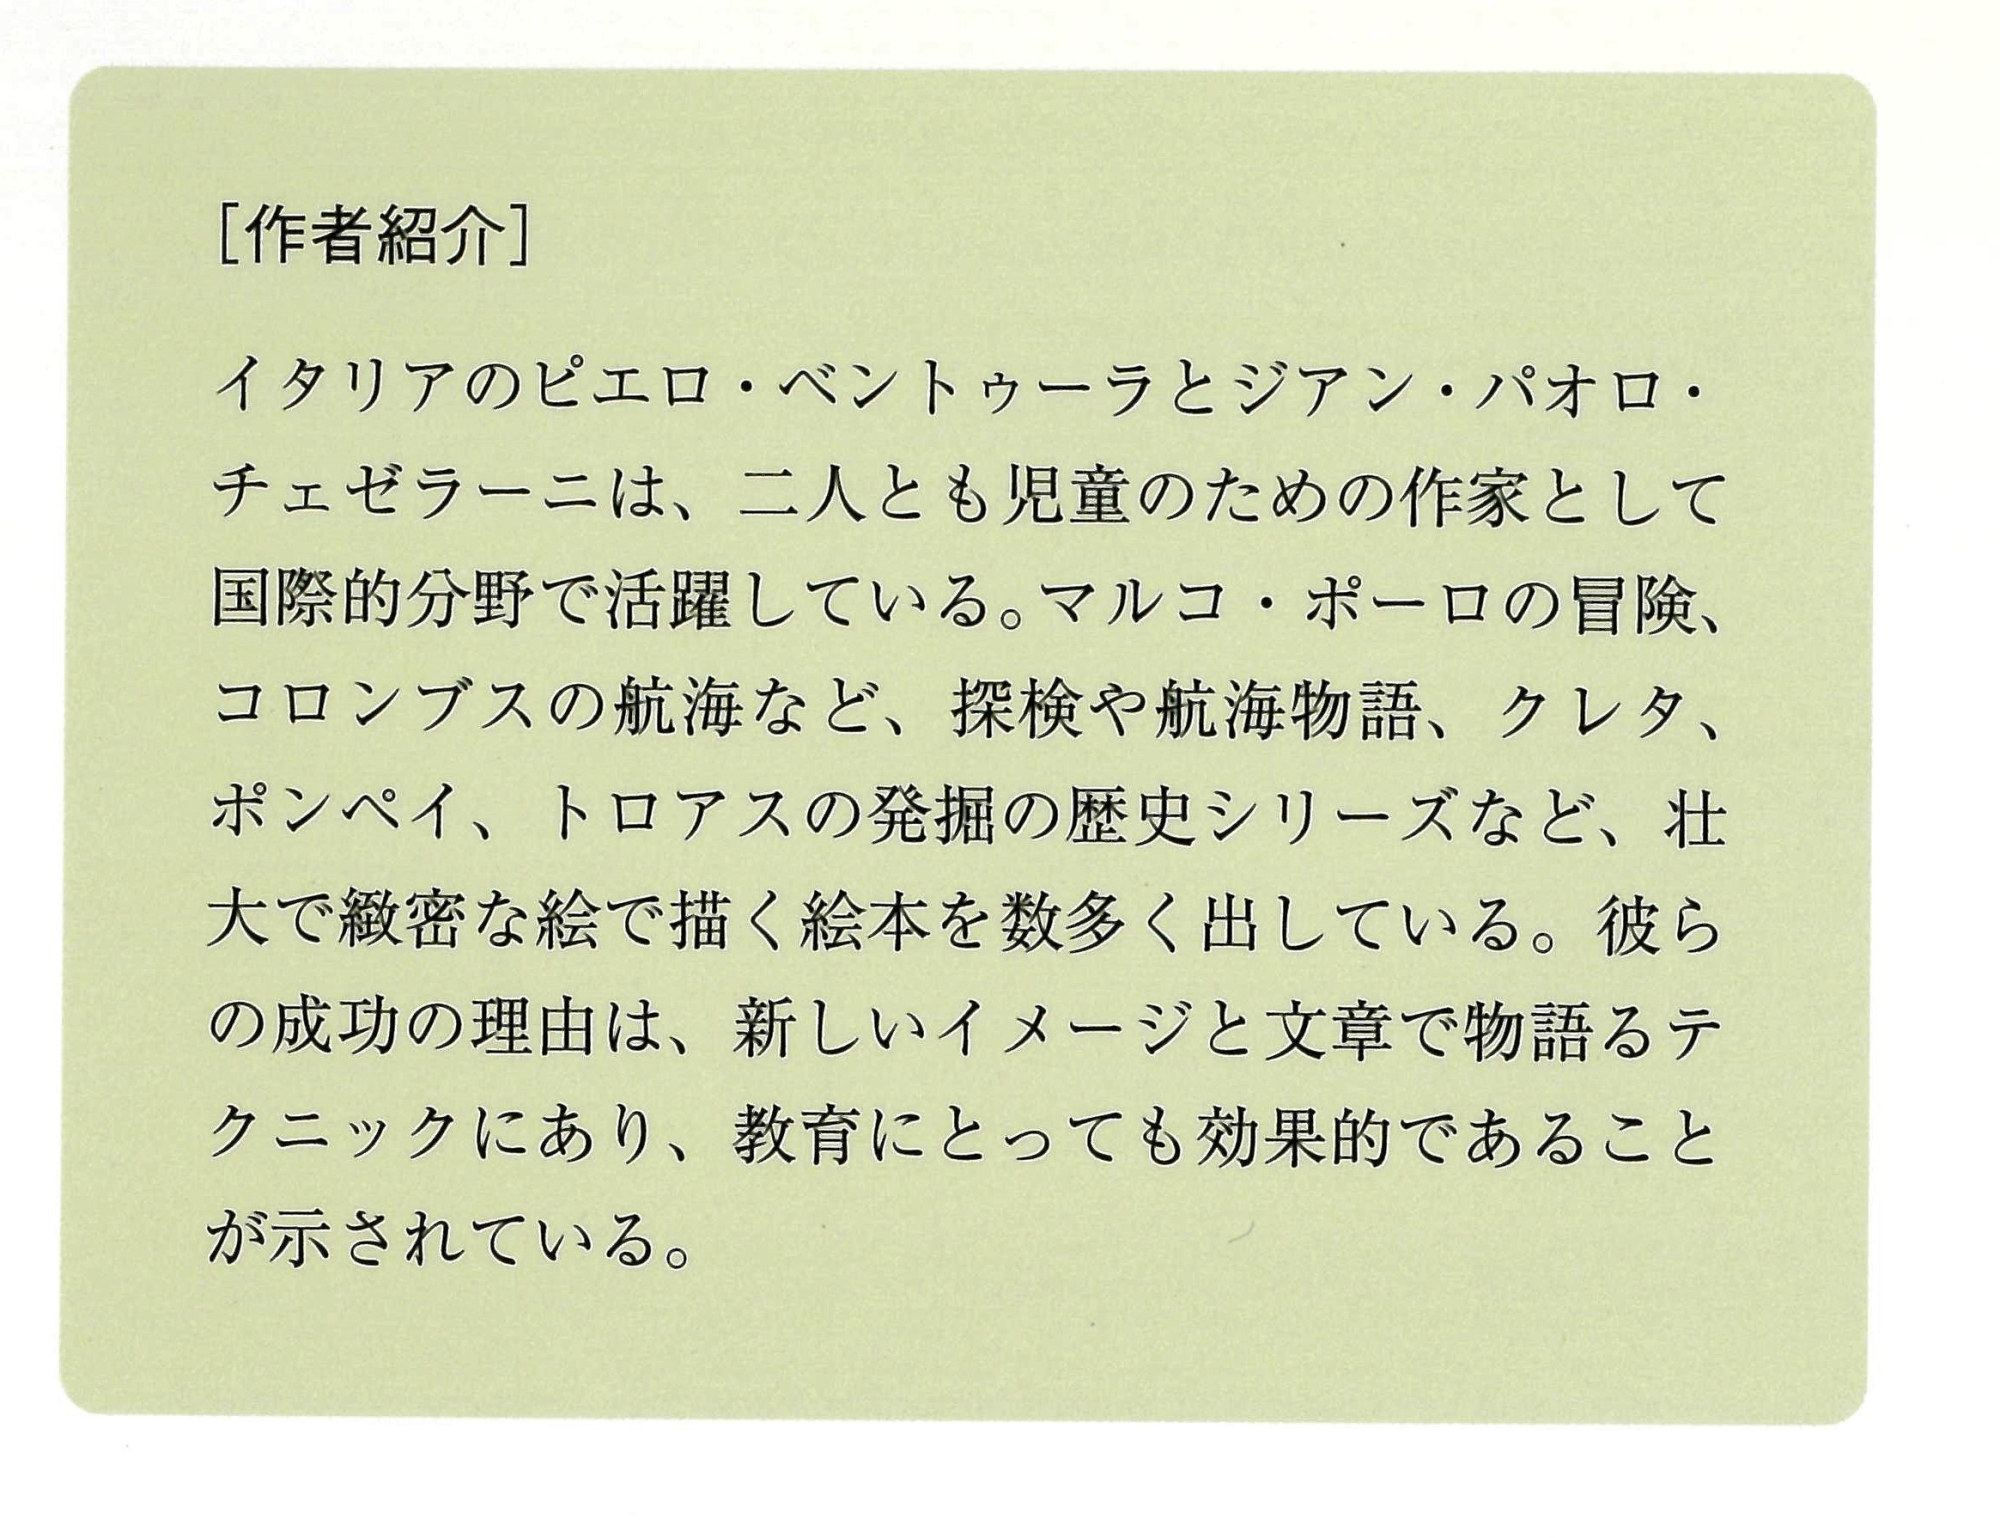 ［作者紹介］
イタリアのピエロ・ベントゥーラとジアン・パオロ・
チェゼラーニは、二人とも児童のための作家として
国際的分野で活躍している。マルコ・ポーロの冒険、
コロンブスの航海など、探検や航海物語、クレタ、
ポンペイ、トロアスの発掘の歴史シリーズなど、壮
大で緻密な絵で描く絵本を数多く出している。彼ら
の成功の理由は、新しいイメージと文章で物語るテ
クニックにあり、教育にとっても効果的であること
が示されている。